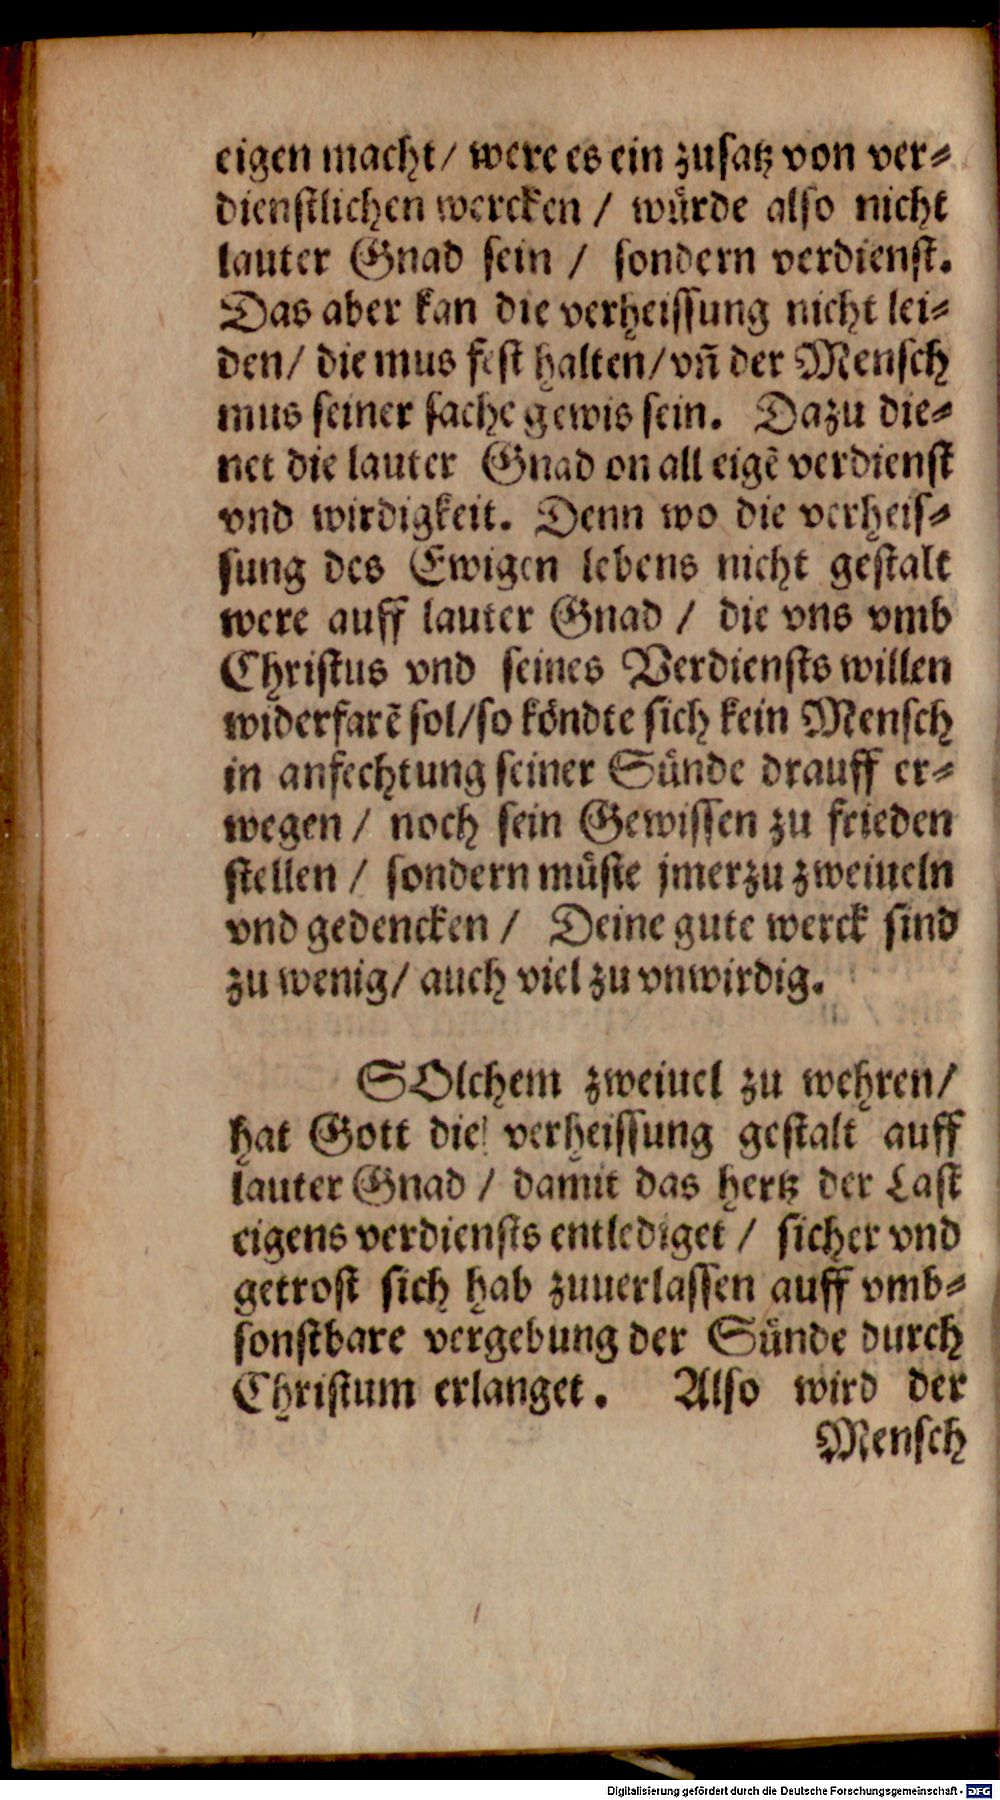 eigen macht/ were es ein zusatz von ver⸗
dienstlichen wercken / wuͤrde also nicht
lauter Gnad sein / sondern verdienst.
Das aber kan die verheissung nicht lei⸗
den/ die mus fest halten/ vn̄ der Mensch
mus seiner sache gewis sein. Dazu die⸗
net die lauter Gnad on all eigē verdienst
vnd wirdigkeit. Denn wo die verheis⸗
sung des Ewigen lebens nicht gestalt
were auff lauter Gnad / die vns vmb
Christus vnd seines Verdiensts willen
widerfarē sol/so koͤndte sich kein Mensch
in anfechtung seiner Suͤnde drauff er⸗
wegen / noch sein Gewissen zu frieden
stellen / sondern muͤste jmerzu zweiueln
vnd gedencken / Deine gute werck sind
zu wenig/ auch viel zu vnwirdig.
SOlchem zweiuel zu wehren/
hat Gott die verheissung gestalt auff
lauter Gnad / damit das hertz der Last
eigens verdiensts entlediget / sicher vnd
getrost sich hab zuuerlassen auff vmb⸗
sonstbare vergebung der Suͤnde durch
Christum erlanget. Also wird der
Mensch
Digitalisierung gefördert durch die Deutsche Forschungsgemeinschaft - DFG